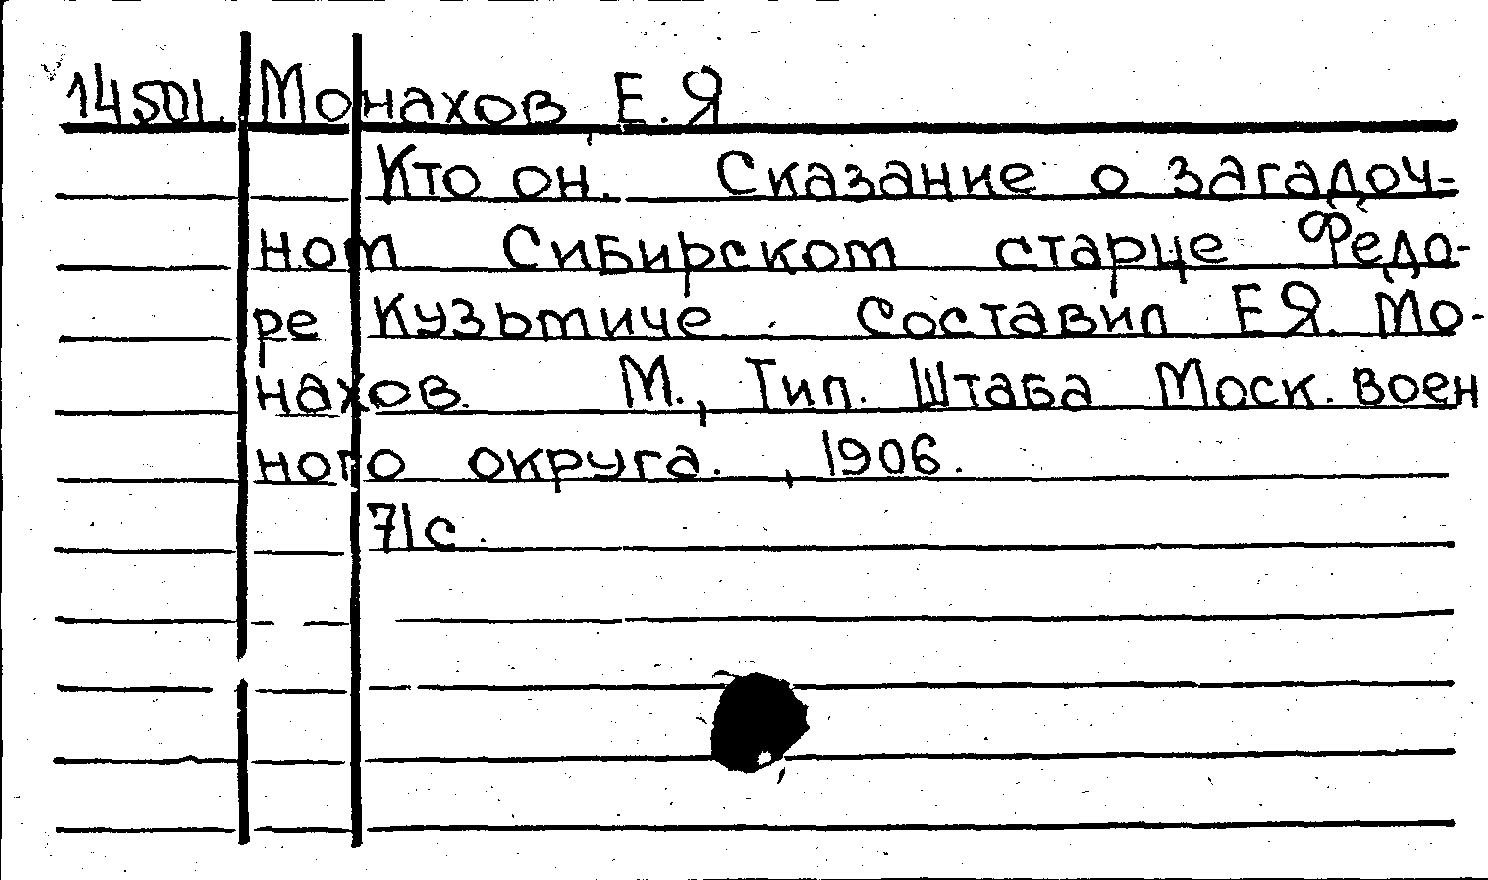 14501. Монахов Е.Я
Кто он. Сказание о загадоч-
ном Сибирском старце Федо-
ре Кузьмиче. Составил Е.Я. Мо-
нахов. М., Тип. Штаба Моск. воен
ного округа. , 1906.
71с.